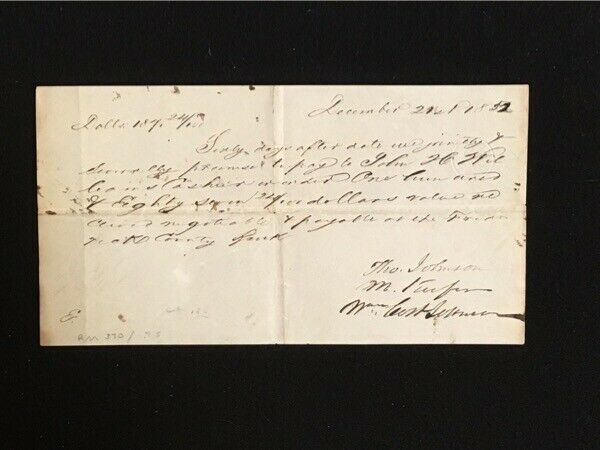 December 21st 1852
Dolls 187 24/100
Sixty days after date we jointly &
severally promise to pay to John H. Wil
liams Cashier or order One hundred
& Eighty seven 24/100 dollars value re
ceived negotiable & payable at the
County Bank
Tho. Johnson
M.
Wm
E